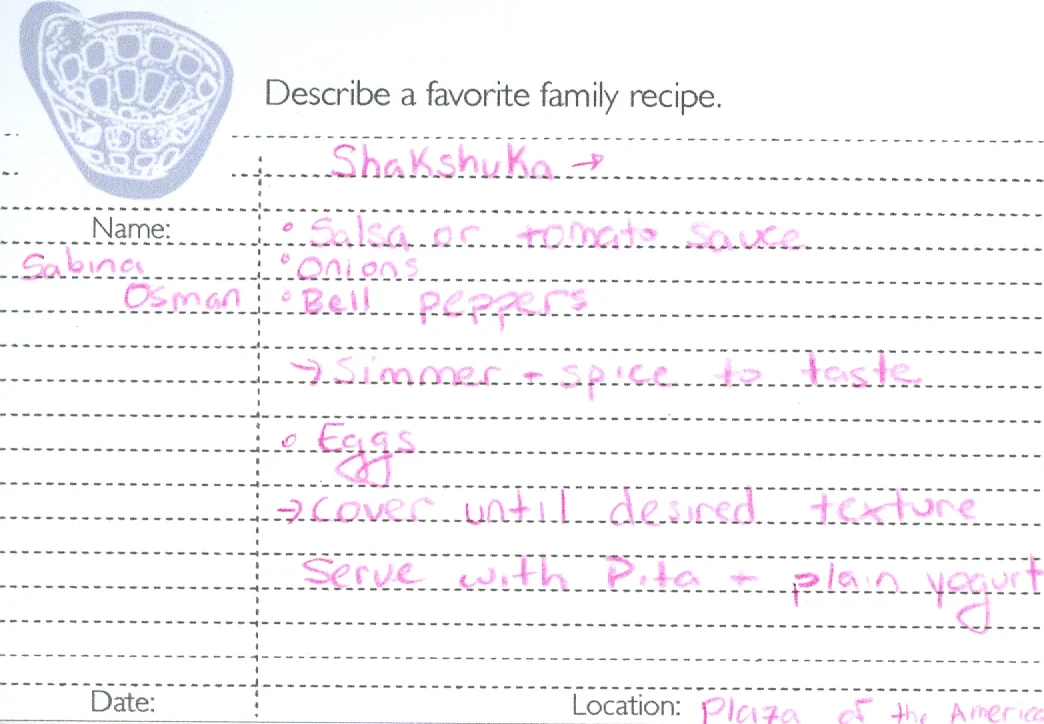 Describe a favorite family recipe.
Shakshuka →
Name:
Sabina
Osman
• Salsa or tomato sauce
• Onions
• Bell peppers
→ Simmer + spice to taste
• Eggs
→ Cover until desired texture
Serve with Pita + plain yogurt
Date:
Location: Plaza of the America